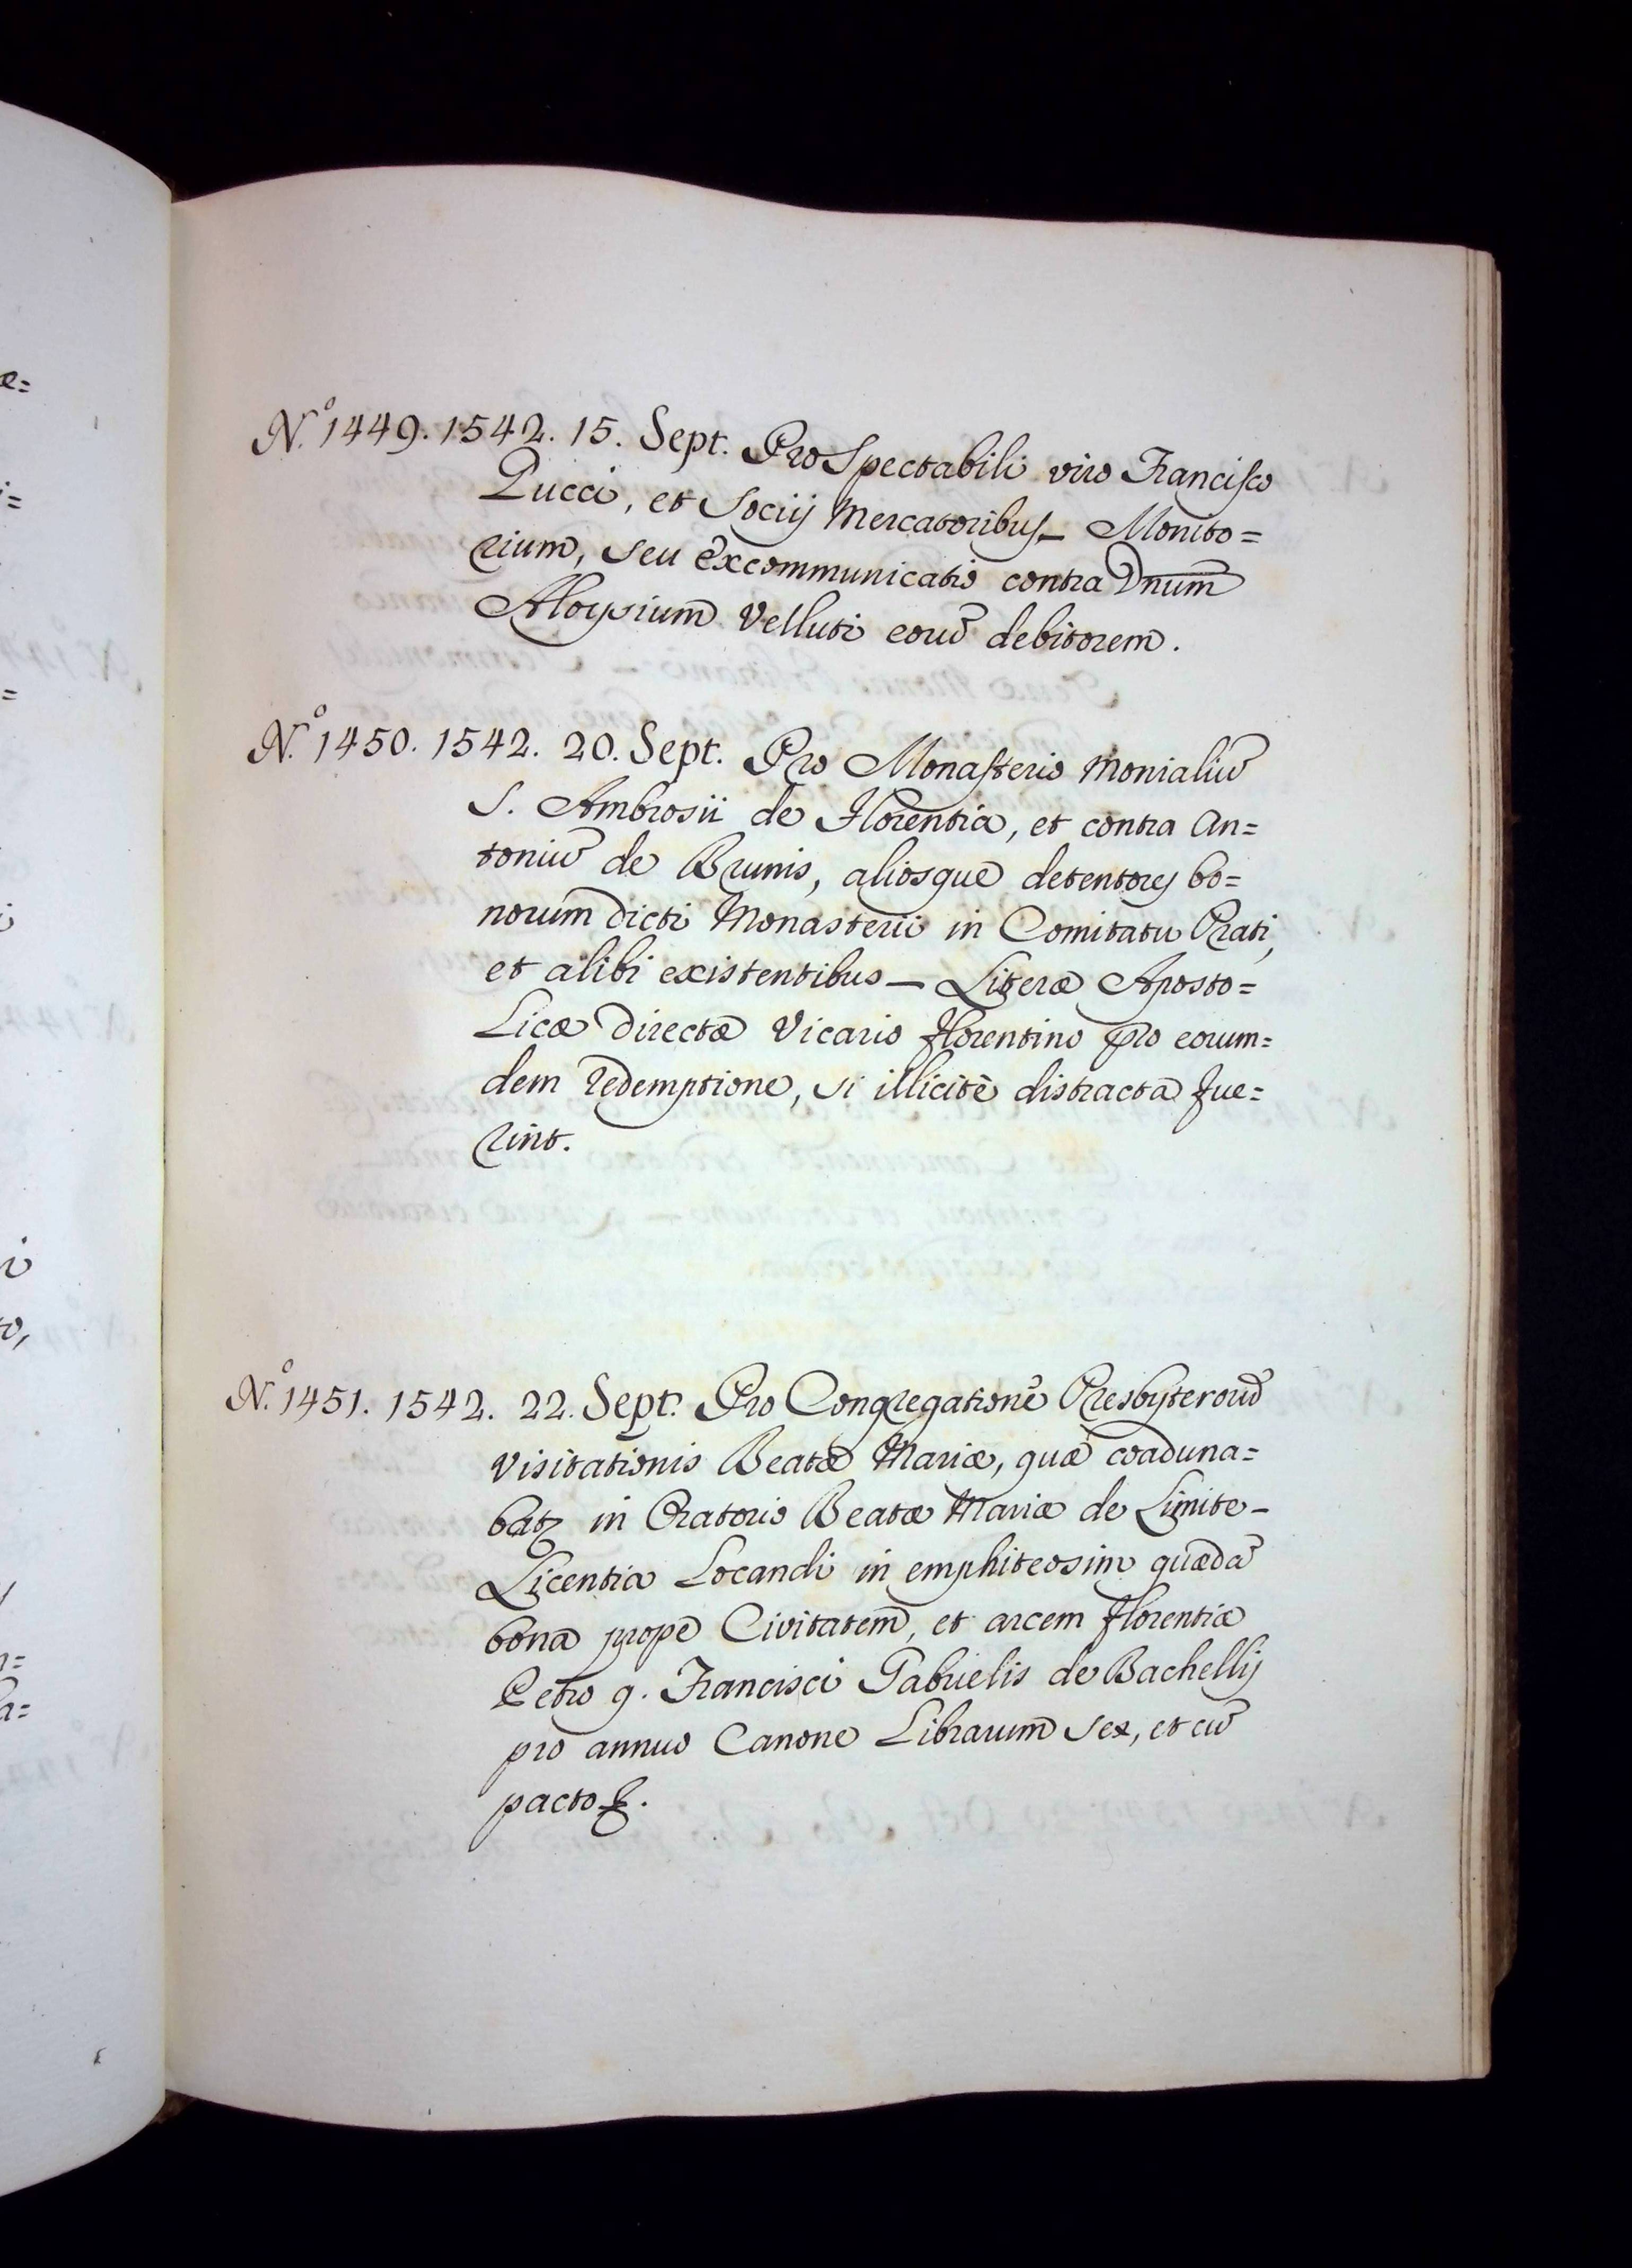 N.º 1449. 1542. 15. Sept. Pro Spectabili viro Francisco
Pucci, et Sociis Mercatoribus_ Monito=
rium, seu excommunicatio contra Dnum̄
Aloysium Velluti eorū debitorem.
N.º 1450. 1542. 20. Sept. Pro Monasterio Monialiū
S. Ambrosii de Florentia, et contra An=
toniū de Brunis, aliosque detentores bo=
norum dicti Monasterii in Comitatu Prati,
et alibi existentibus — Literæ Aposto=
licæ directæ Vicario Florentino pro eorum=
dem redemptione, si illicitè distracta fue=
rint.
N.º 1451. 1542. 22. Sept. Pro Congregatione Presbyterorū
Visitationis Beatæ Mariæ, quæ coaduna=
batʒ in Oratorio Beatæ Mariæ de Limite-
Licentia Locandi in emphiteosim quædā
bona prope Civitatem, et arcem Florentiæ
Petro q. Francisci Gabrielis de Bachellis
pro annuo Canone Librarum sex, et cū
pacto &.